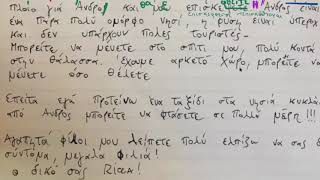 πλοίο για Άνδρο και μου επισκε Άνδρος είναι
ένα πάρα πολύ όμορφο νησί, η φύση είναι υπέροχη
και δεν υπάρχουν πολλές τουρίστες.
Μπορείτε να μένετε στο σπίτι μου πολύ κοντά
στην θάλασσα. Έχομε αρκετό χώρο, μπορείτε να
μένετε όσο θέλετε
Έπειτα εγώ προτείνω ένα ταξίδι στα νησιά κυκλά
από Άνδρος μπορείτε να φτάσετε σε πολλά μέρη!!!
Αγαπητά φίλοι μου λείπετε πολύ ελπίζω να σας δ
σύντομα, μεγάλα φιλιά!
ο δικό σας Rian!